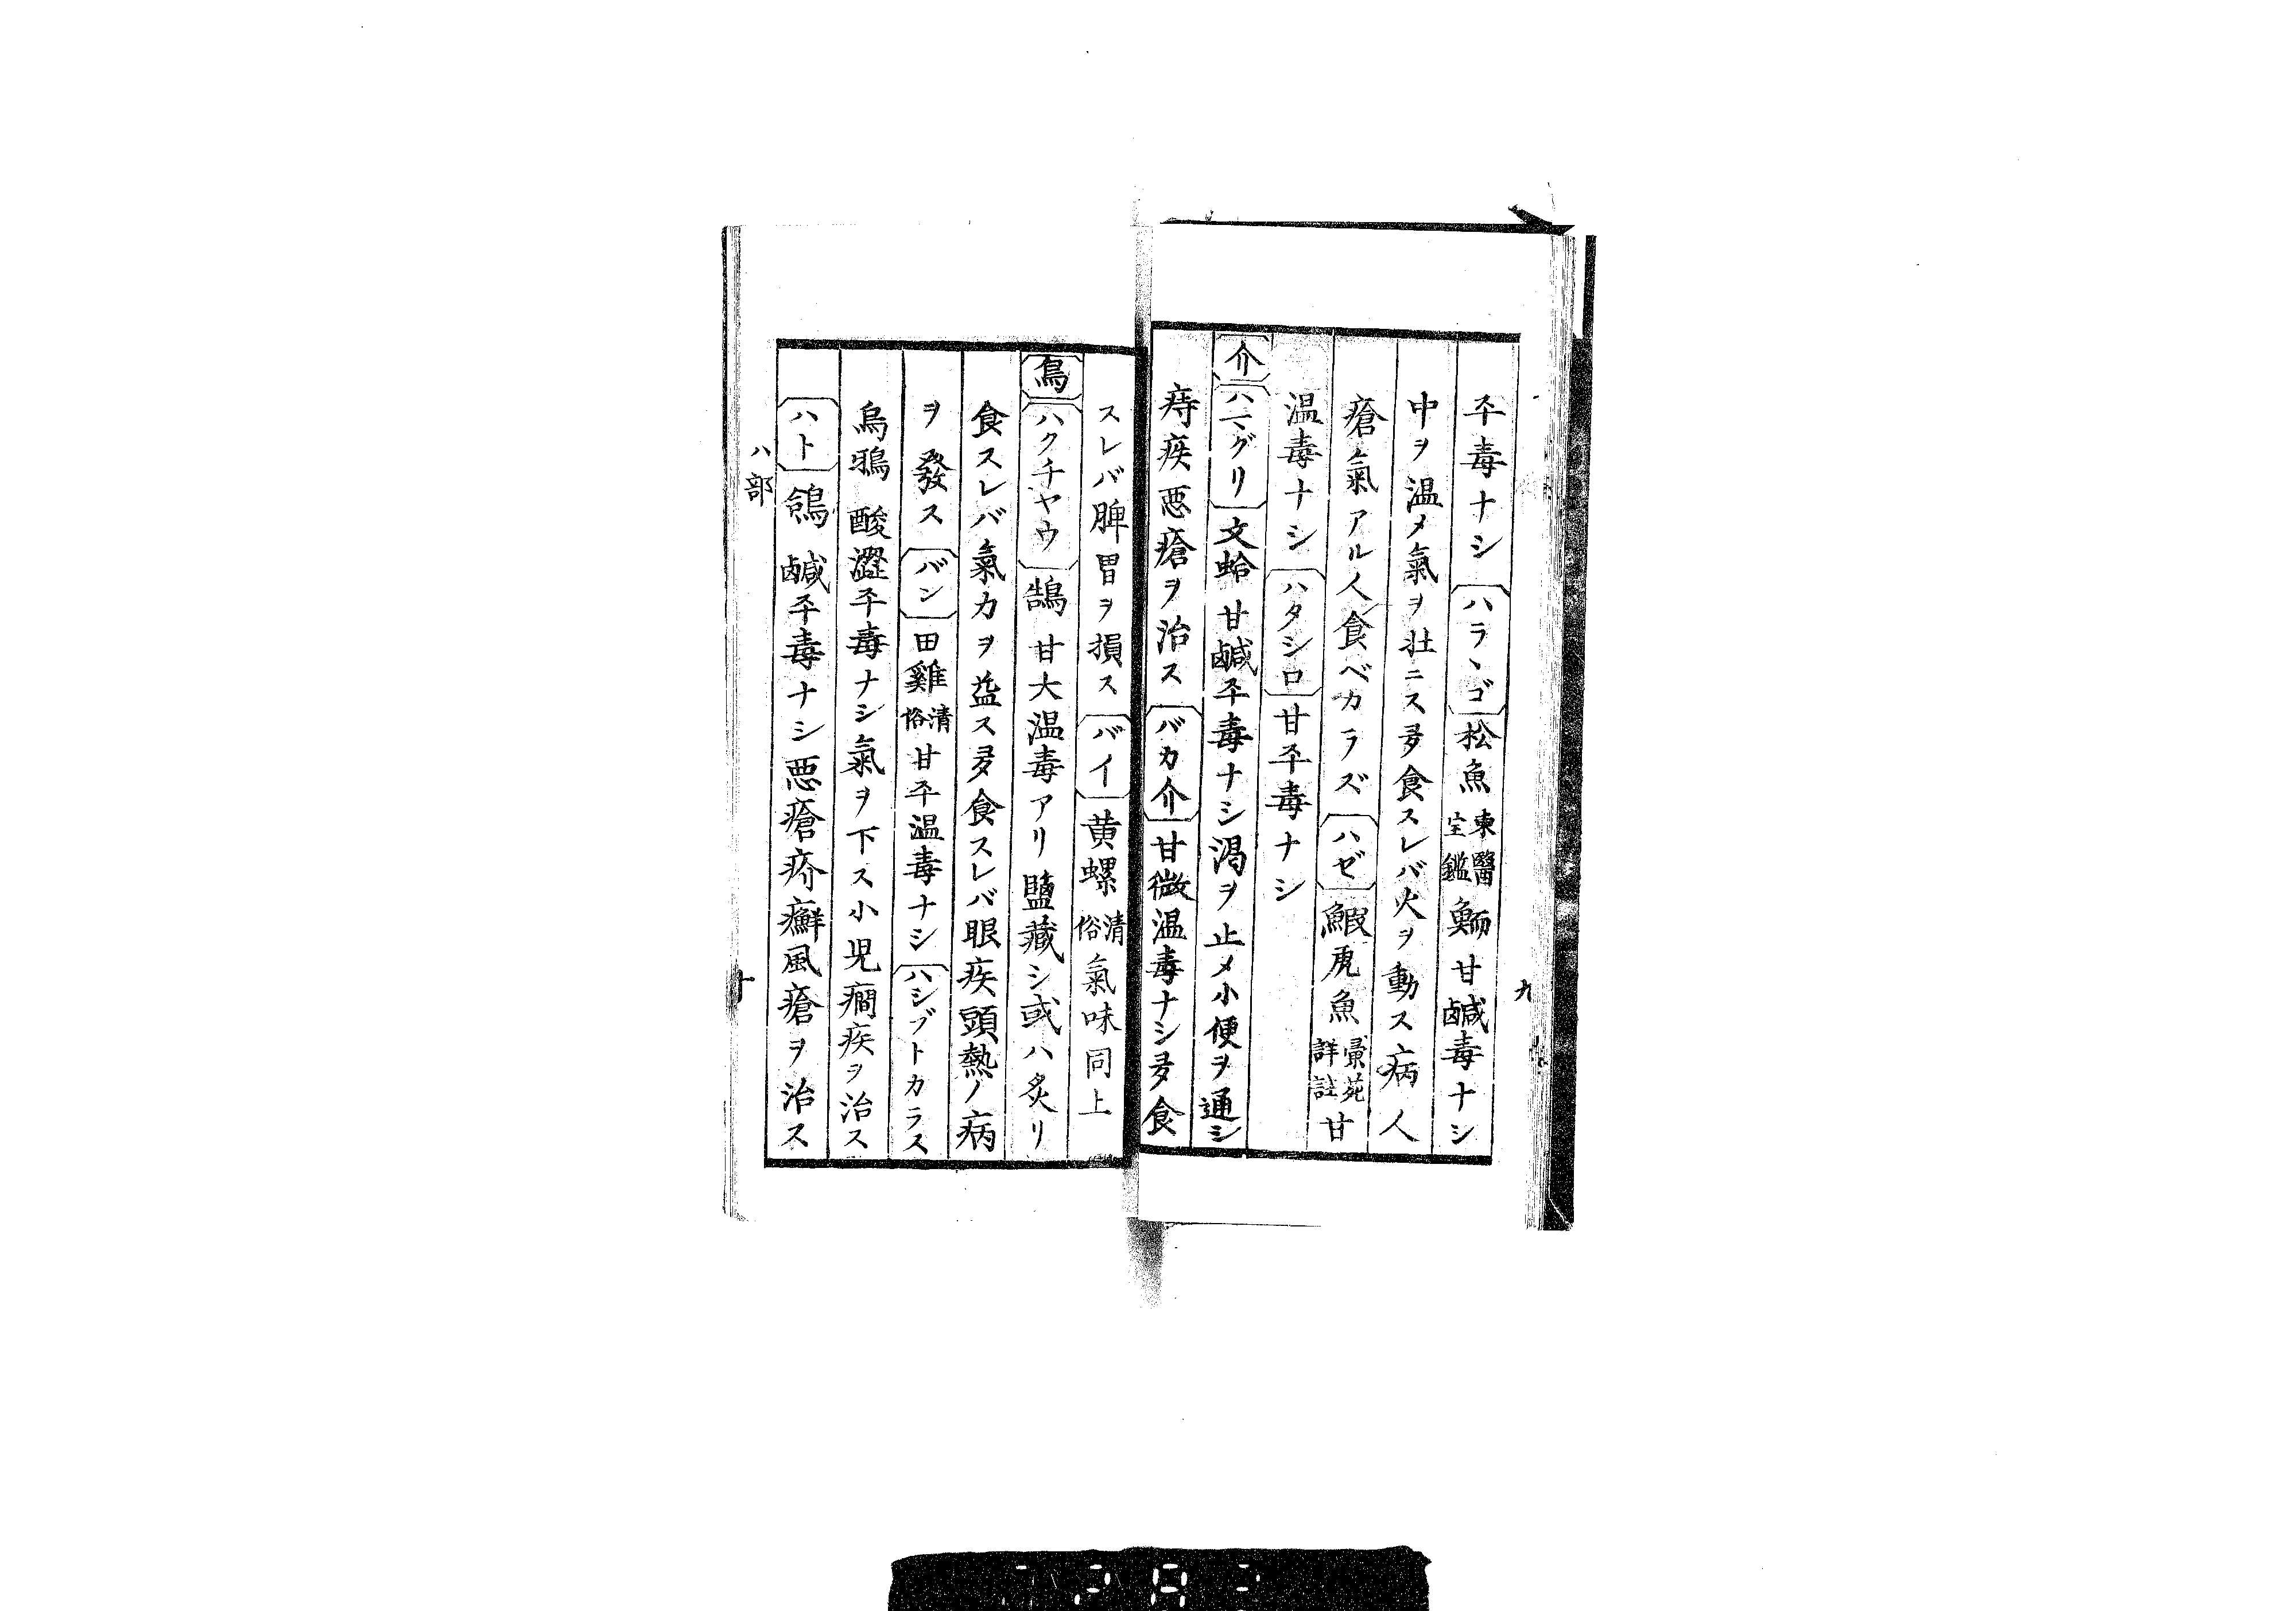 平毒ナシ ハラヽゴ 松魚 東醫宝鑑 鮞 甘鹹毒ナシ
中ヲ温メ氣ヲ壮ニス多食スレバ火ヲ動ス病人
瘡氣アル人食ベカラズ ハゼ 鰕虎魚 彙苑詳註 甘
温毒ナシ ハタシロ 甘平毒ナシ
介 ハマグリ 文蛤 甘鹹平毒ナシ渇ヲ止メ小便ヲ通シ
痔疾悪瘡ヲ治ス バカ介 甘微温毒ナシ多食
九
スレバ脾胃ヲ損ス バイ 黄螺 清俗 氣味同上
鳥 ハクチヤウ 鵠 甘大温毒アリ鹽藏シ或ハ炙リ
食スレバ氣力ヲ益ス多食スレバ眼疾頭熱ノ病
ヲ發ス バン 田雞 清俗 甘平温毒ナシ ハシブトカラス
烏鴉 酸澀平毒ナシ氣ヲ下ス小児癇疾ヲ治ス
ハト 鴿 鹹平毒ナシ悪瘡疥癬風瘡ヲ治ス
ハ部
十